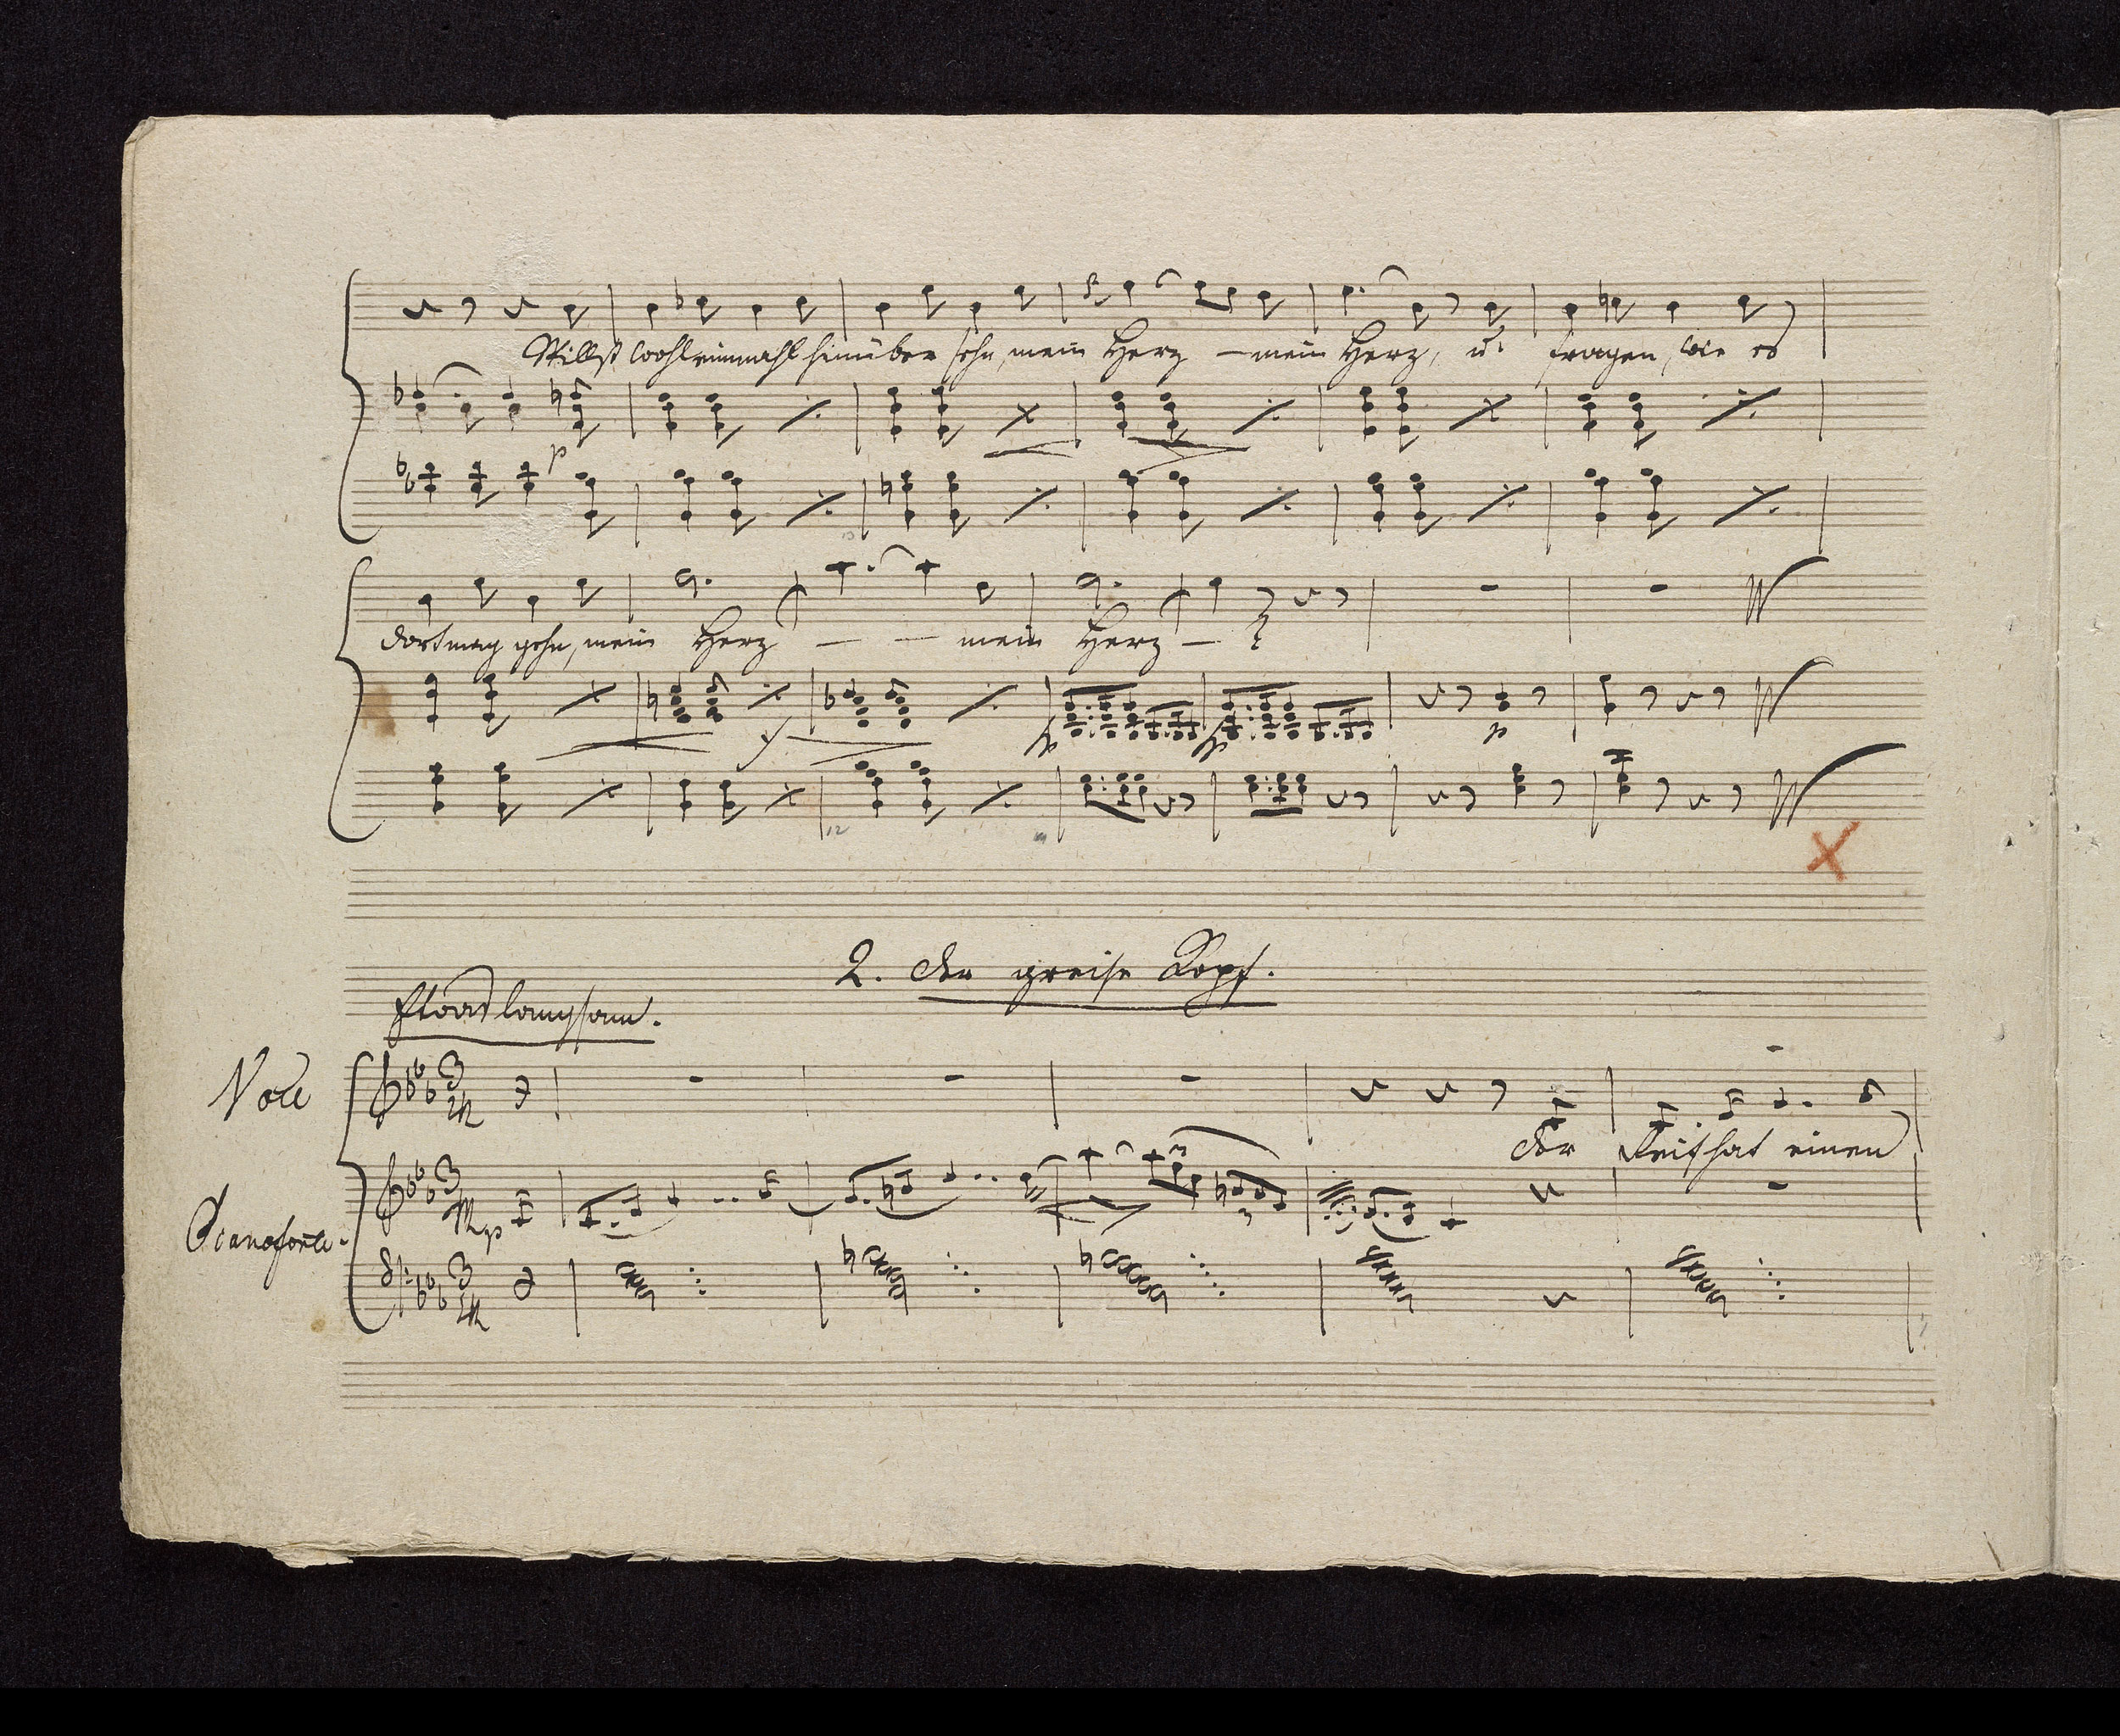 Willst wohl einmahl hinüber sehn, mein Herz – mein Herz, u. fragen, wie es
p
dort mag gehn, mein Herz — — mein Herz — ?
f fp fp p
12
2. Der greise Kopf.
Etwas langsam.
Voce
Der Reif hat einen
Pianoforte.
p
3
3